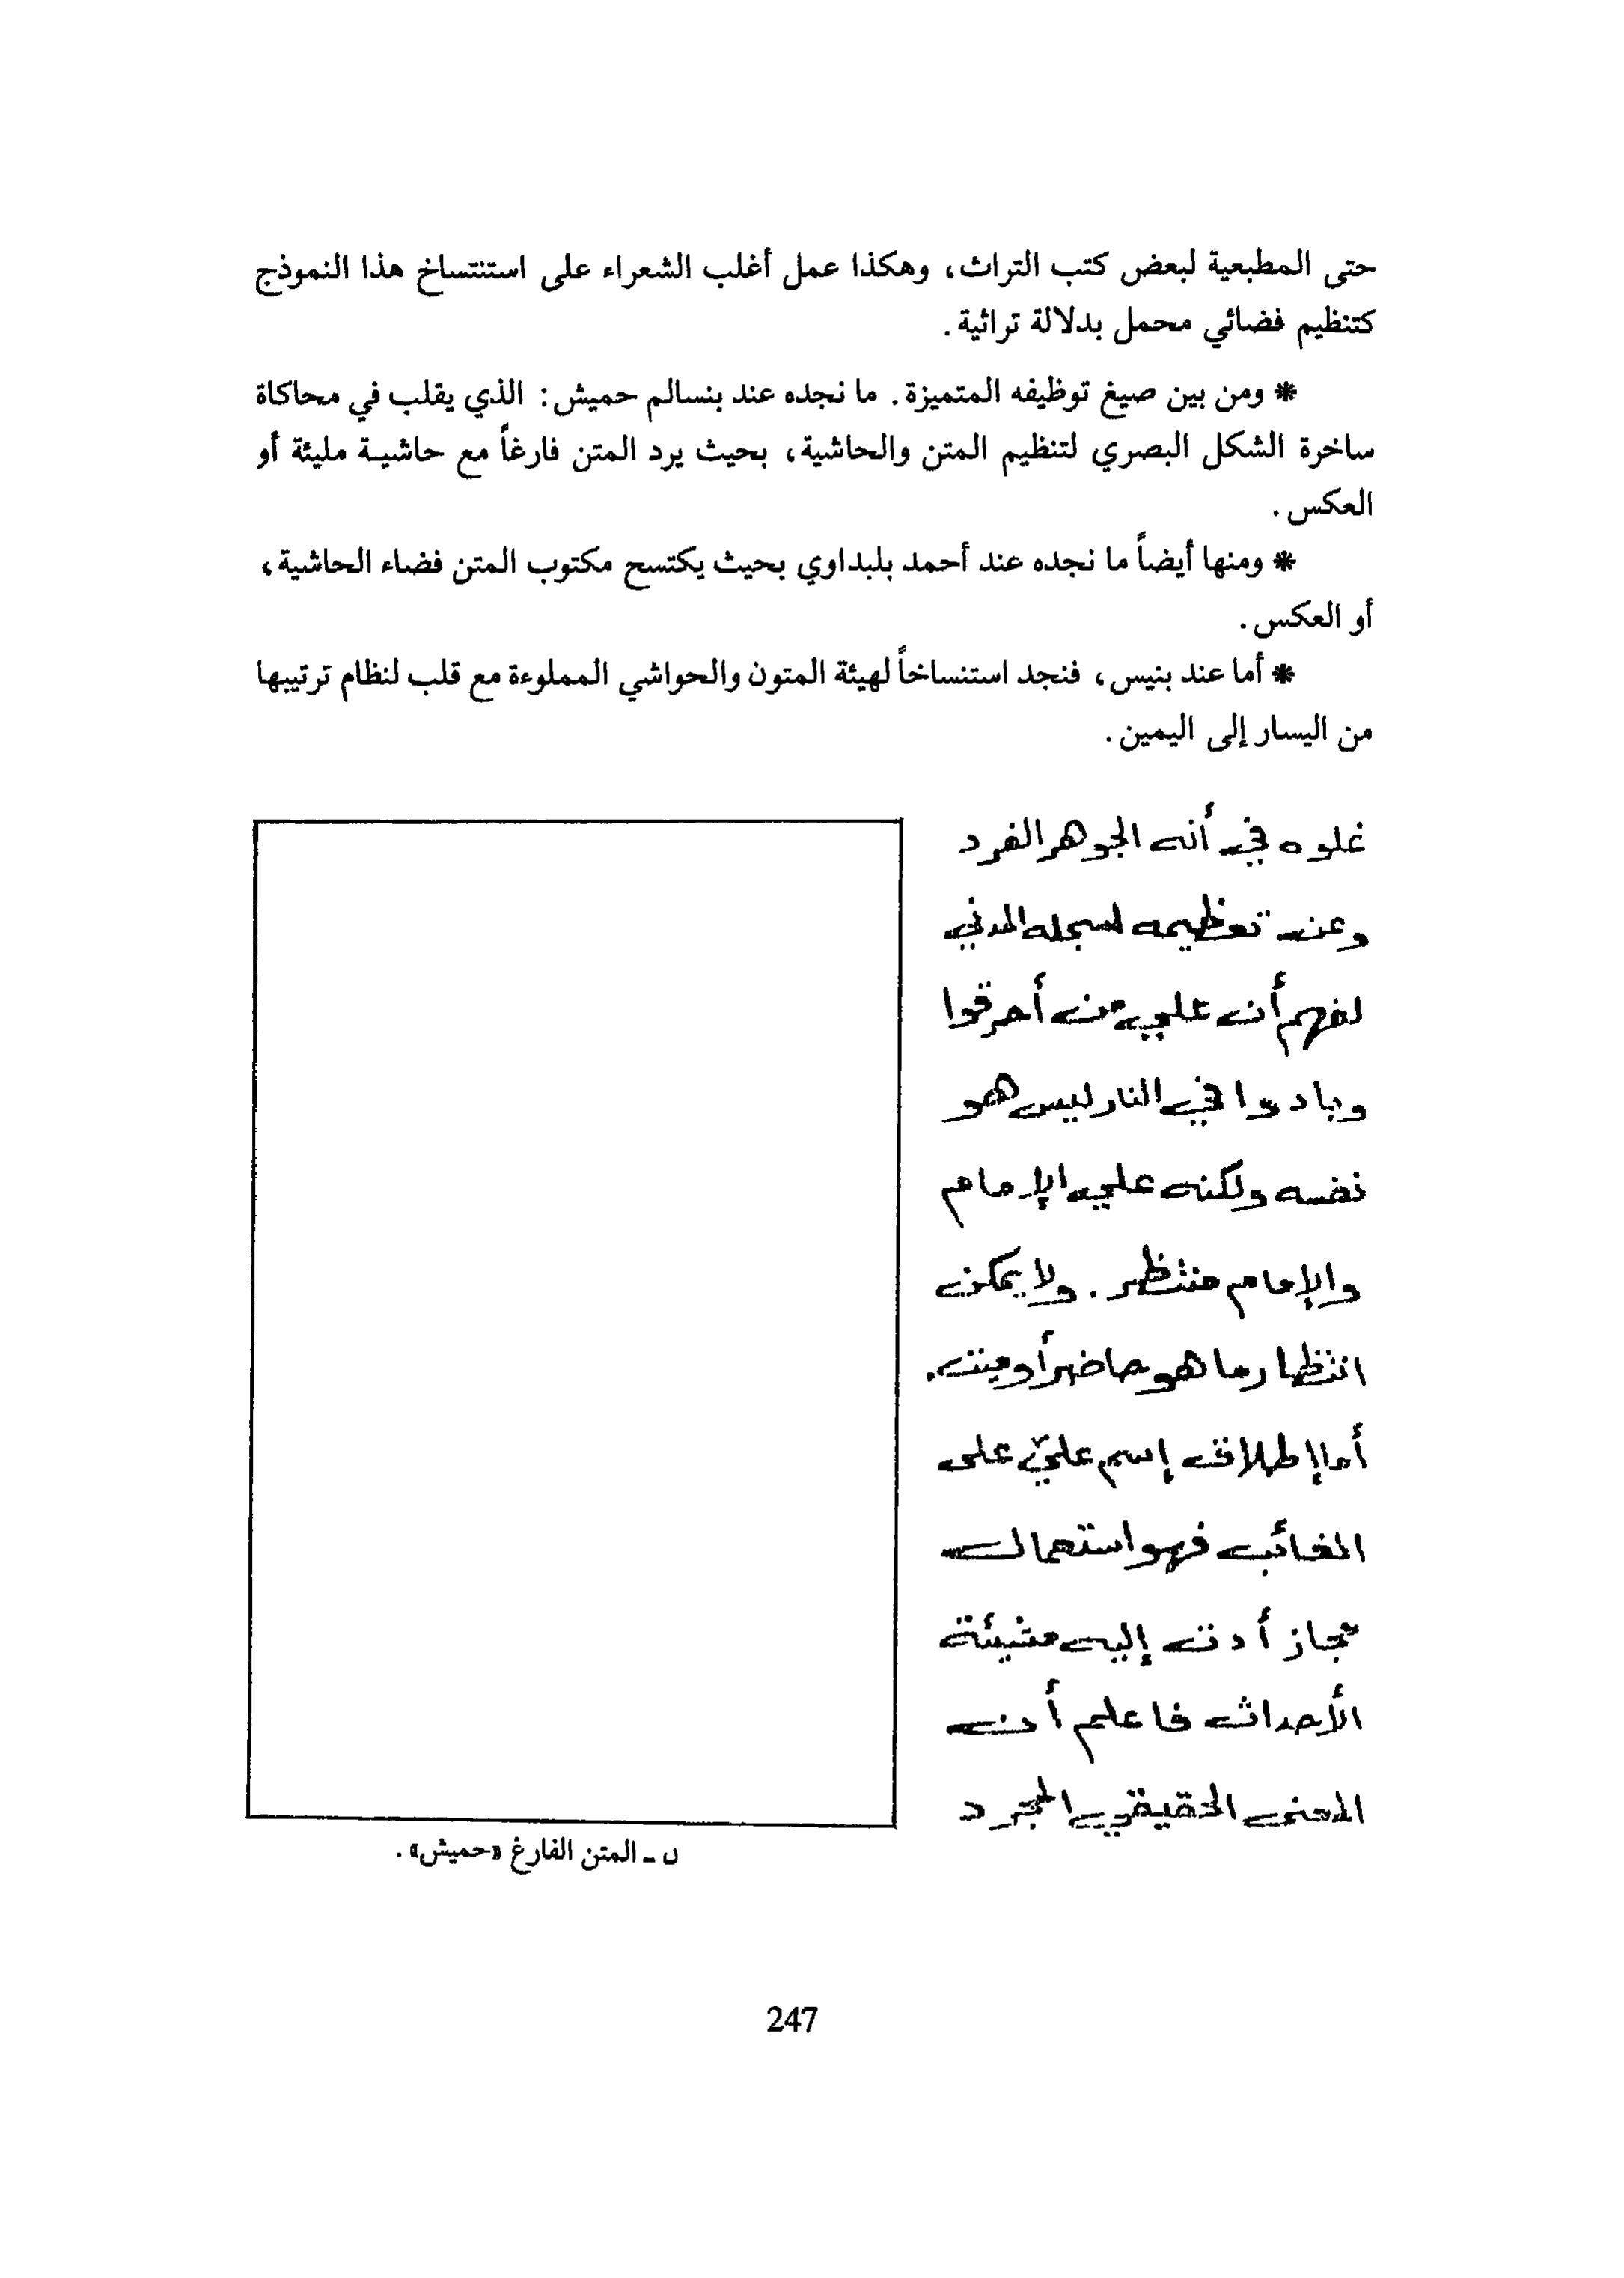 حتى المطبعية لبعض كتب التراث، وهكذا عمل أغلب الشعراء على استنتساخ هذا النموذج
كتنظيم فضائي محمل بدلالة تراثية.
* ومن بين صيغ توظيفه المتميزة. ما نجده عند بنسالم حميش: الذي يقلب في محاكاة
ساخرة الشكل البصري لتنظيم المتن والحاشية، بحيث يرد المتن فارغاً مع حاشيـة مليئة أو
العكس.
* ومنها أيضاً ما نجده عند أحمد بلبداوي بحيث يكتسح مكتوب المتن فضاء الحاشية،
أو العكس.
* أما عند بنيس، فنجد استنساخاً لهيئة المتون والحواشي المملوءة مع قلب لنظام ترتيبها
من اليسار إلى اليمين.
غلوه في أنه الجوهر الفرد
وعن تعظيمه لسجله المدني
لفهم أن علي من أحرقوا
وبادوا في النار ليس هو
نفسه ولكنه علي الإمام
والإمام منتظر. ولا يمكن
انتظار ما هو حاضر أو ميت.
أما إطلاق إسم عليّ على
الغائب فهو استعمال
مجاز أدت إليه مشيئة
الأحداث فاعلم أن
المعنى الحقيقي المجرد
ں ـ المتن الفارغ «حميش».
247